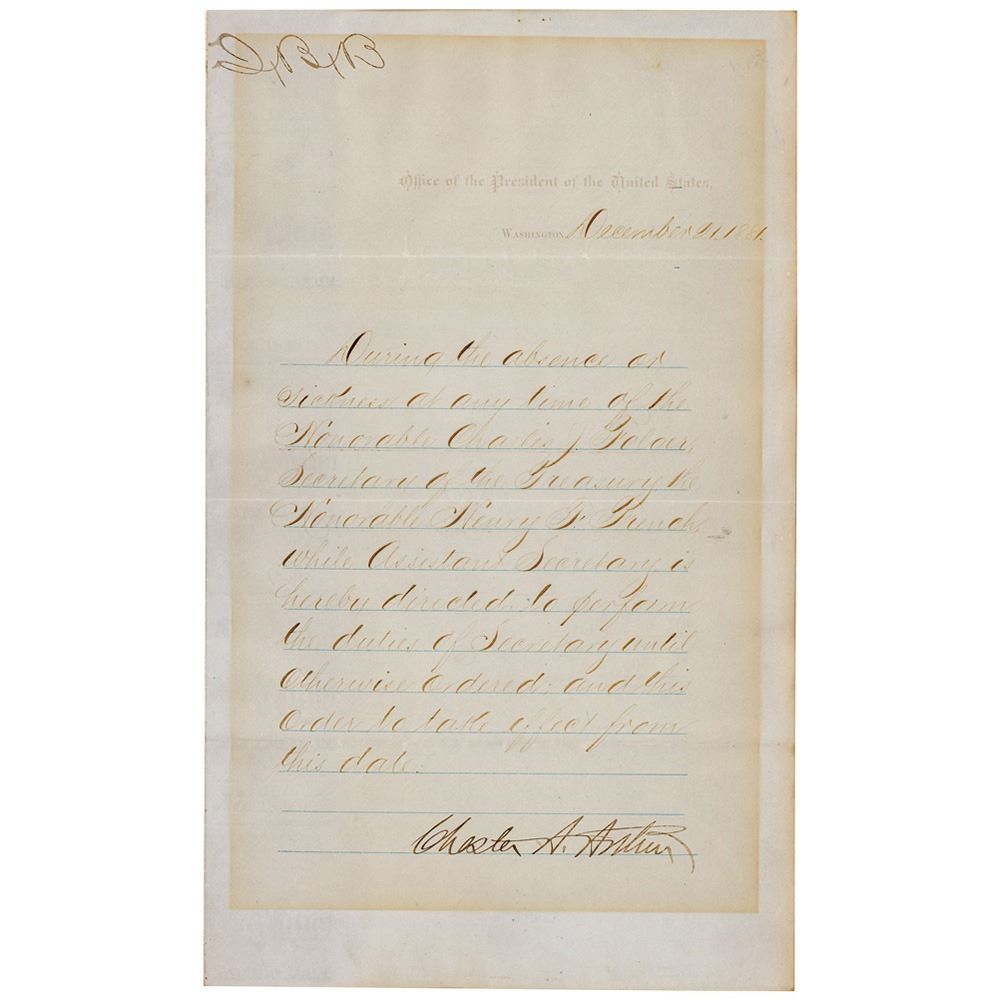 Office of the President of the United States,
Washington, December 21, 1881.
During the absence or
sickness at any time of the
Honorable Charles J. Folger,
Secretary of the Treasury the
Honorable Henry F. French,
while Assistant Secretary is
hereby directed to perform
the duties of Secretary until
otherwise ordered: and this
order to take effect from
this date.
Chester A. Arthur